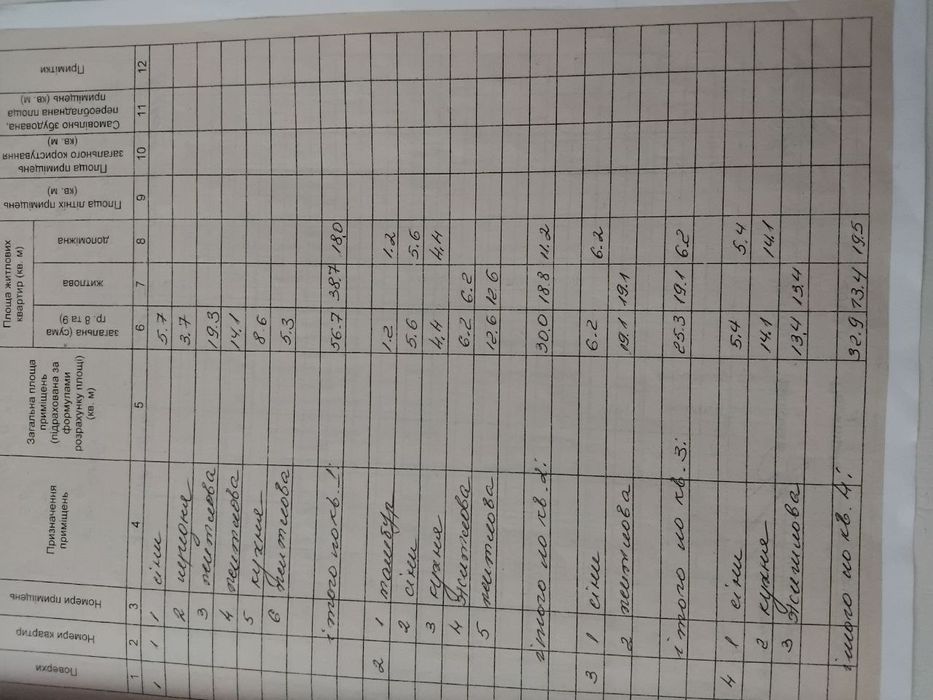 Поверхи
Номери квартир
Номери приміщень
Призначення приміщень
Загальна площа приміщень (підрахована за формулами розрахунку площі) (кв. м)
Площа житлових квартир (кв. м)
загальна (сума гр. 8 та 9)
житлова
допоміжна
Площа літніх приміщень (кв. м)
Площа приміщень загального користування (кв. м)
Самовільно збудована, переобладнана площа приміщень (кв. м)
Примітки
1 2 3 4 5 6 7 8 9 10 11 12
1 1 1 сіни 5.7
2 3.7
3 житлова 19.3
4 житлова 14.1
5 кухня 8.6
6 житлова 5.3
ітого по кв. 1: 56.7 38.7 18.0
2 1 тамбур 1.2 1.2
2 сіни 5.6 5.6
3 кухня 4,4 4,4
4 Житлова 6.2 6.2
5 житлова 12.6 12.6
ітого по кв. 2: 30.0 18.8 11.2
3 1 сіни 6.2 6.2
2 житлова 19.1 19.1
ітого по кв. 3: 25.3 19.1 6.2
4 1 сіни 5.4 5.4
2 кухня 14.1 14,1
3 Житлова 13,4 13,4
ітого по кв. 4: 32.9 13.4 19.5